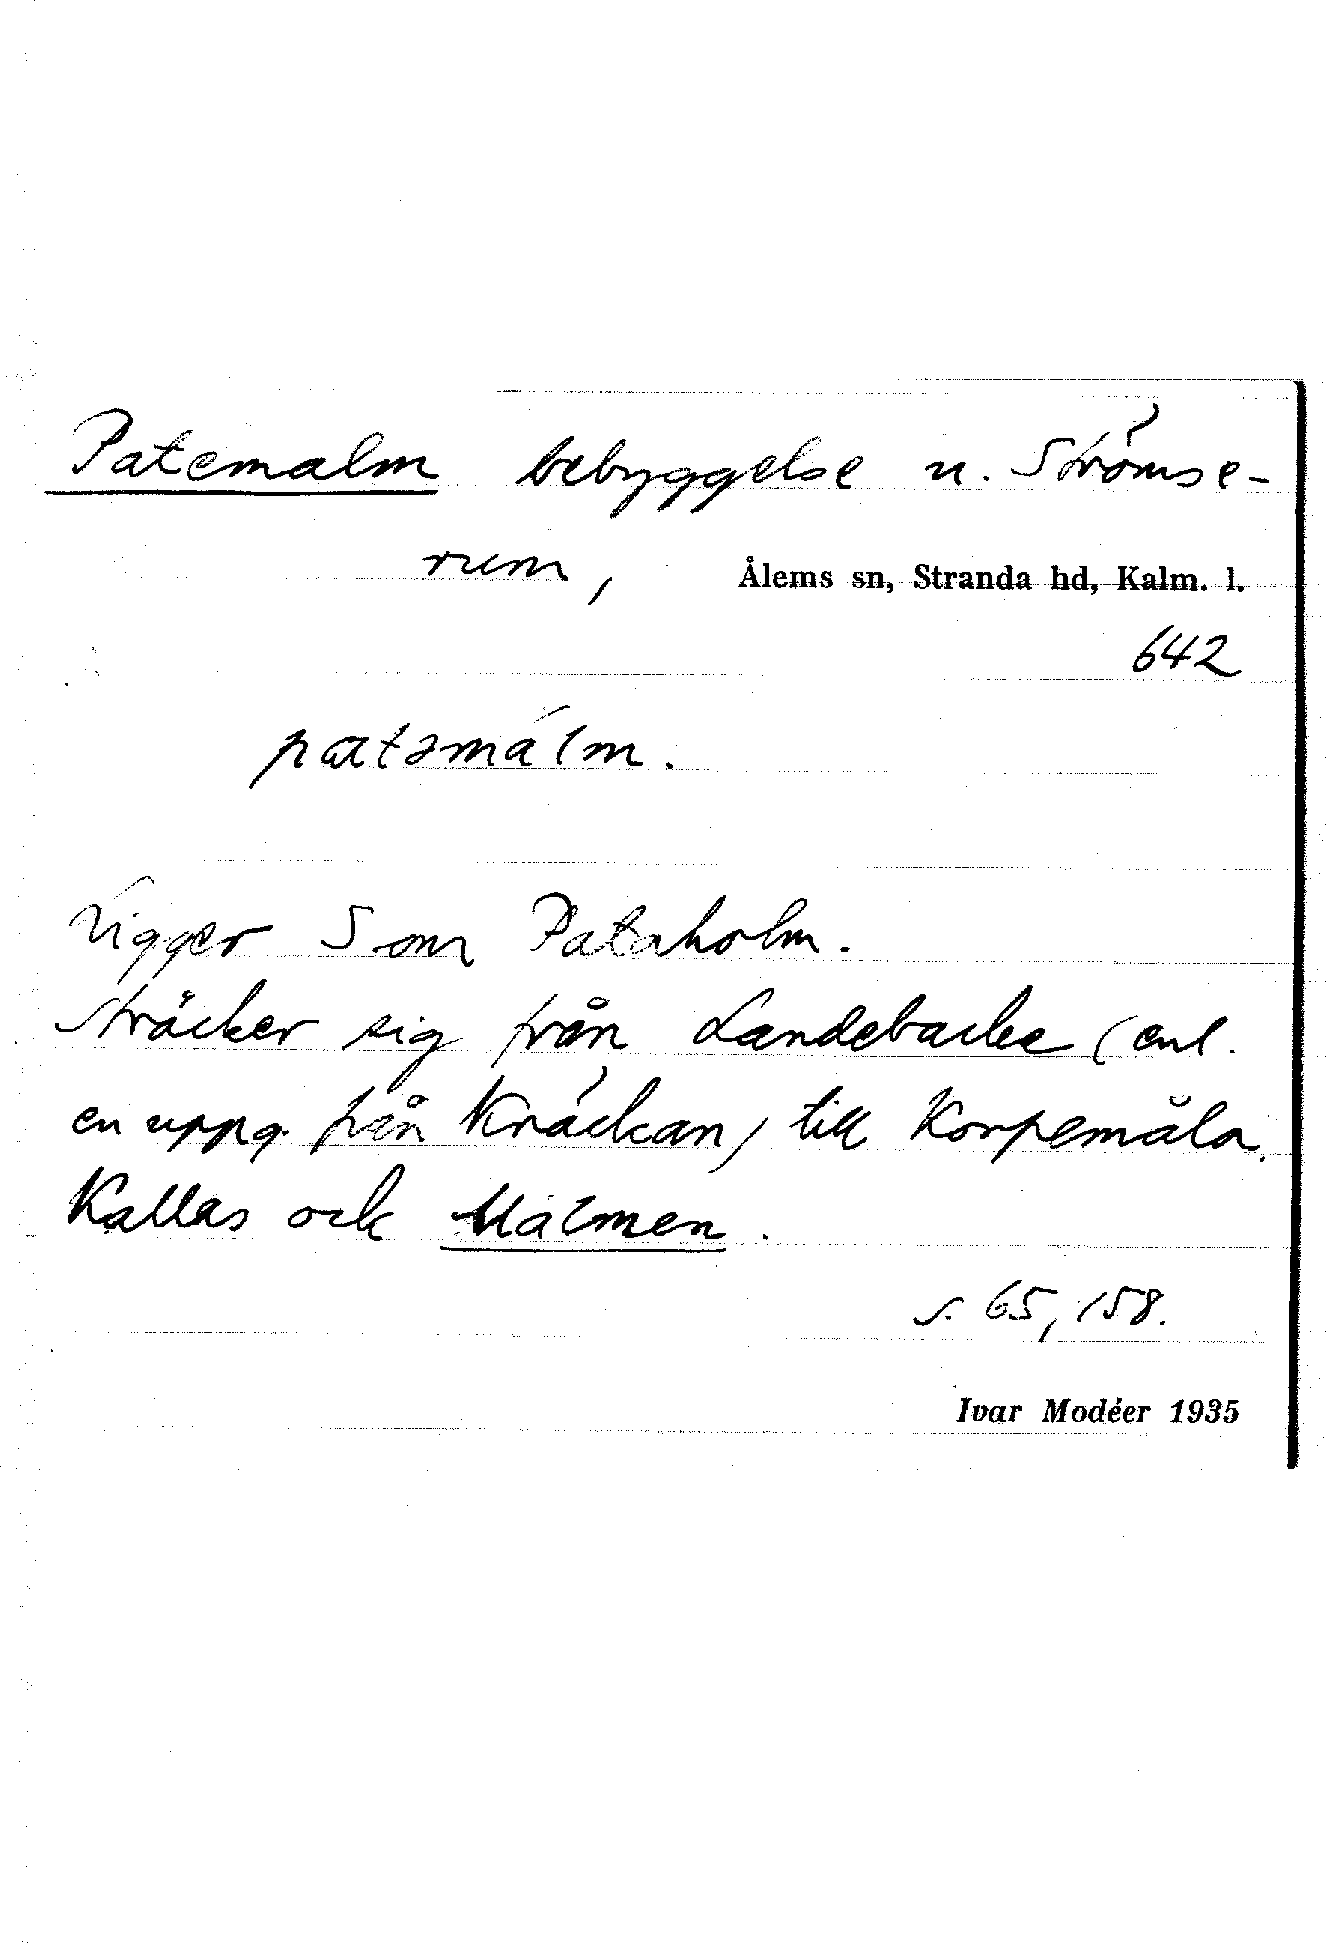 Patemalm bebyggelse u. Strömse-
rum, Ålems sn, Stranda hd, Kalm. l.
642
patəmálm.
Ligger S om Pataholm.
Sträcker sig från Landebacke (enl.
en uppg. från Kräckan) till Korpemåla.
Kallas ock Malmen.
s. 65, 158.
Ivar Modéer 1935